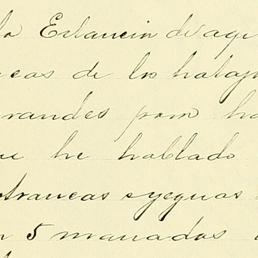 la Estancia de aqu
cas de los trabajo
grandes para ha
que he hablado
potrancas y yeguas
n 5 manadas